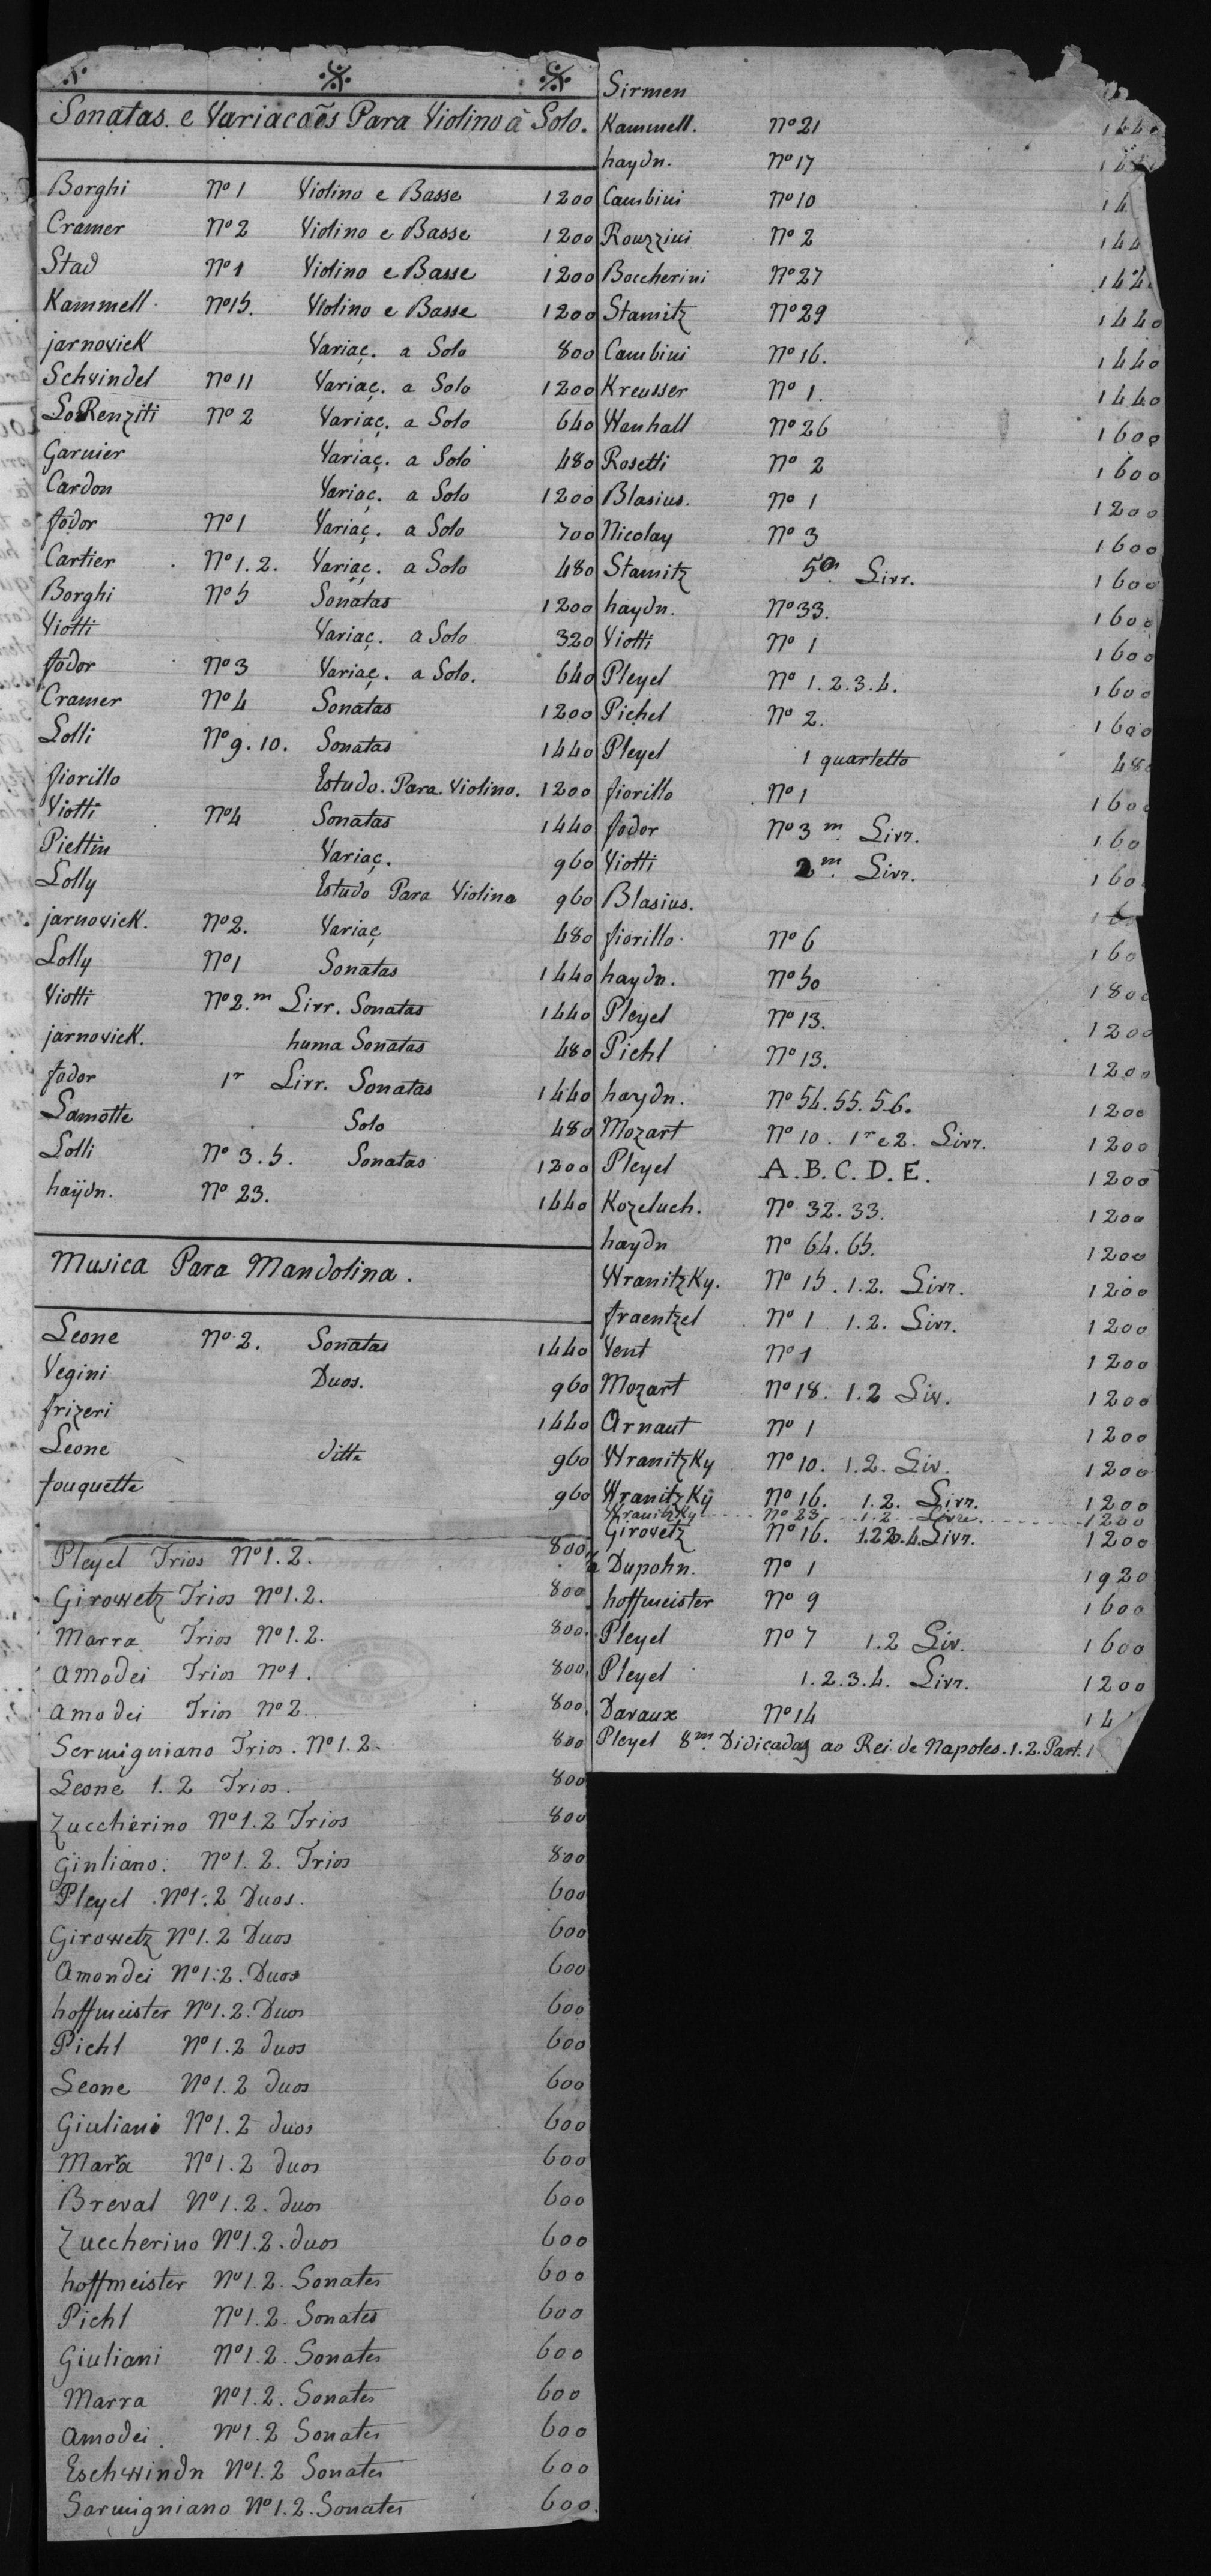 Sonatas. e Variacoẽs Para Violino à Solo.
Borghi Nº 1 Violino e Basse 1200
Cramer Nº 2 Violino e Basse 1200
Stad Nº 1 Violino e Basse 1200
Kammell. Nº 15. Violino e Basse 1200
jarnovicK Variaç. a Solo 800
Schvindel Nº 11 Variaç. a Solo 1200
LoRenziti Nº 2 Variaç. a Solo 640
Garnier Variaç. a Solo 480
Cardon Variaç. a Solo 1200
fodor Nº 1 Variaç. a Solo 700
Cartier Nº 1. 2. Variaç. a Solo 480
Borghi Nº 5 Sonatas 1200
Viotti Variaç. a Solo 320
fodor Nº 3 Variaç. a Solo. 640
Cramer Nº 4 Sonatas 1200
Lolli Nº 9. 10. Sonatas 1440
fiorillo Estudo. Para. Violino. 1200
Viotti Nº 4 Sonatas 1440
Piettin Variaç. 960
Lolly Estudo Para Violino 960
jarnovicK. Nº 2. Variaç 480
Lolly Nº 1 Sonatas 1440
Viotti Nº 2.m Livr. Sonatas 1440
jarnovicK. huma Sonatas 480
fodor 1r Livr. Sonatas 1440
Lamotte Solo 480
Lolli Nº 3. 5. Sonatas 1200
haÿdn. Nº 23. 1440
Musica Para Mandolina.
Leone Nº 2. Sonatas 1440
Vegini Duos. 960
frizeri 1440
Leone ditte 960
fouquette 960
Pleyel Trios Nº 1. 2. 800
Girowetz Trios Nº 1. 2. 800
Marra Trios Nº 1. 2. 800.
Amodei Trios Nº 1. 800.
Amodei Trios Nº 2. 800.
Sermigniano Trios. Nº 1. 2. 800
Leone 1. 2 Trios. 800
Zuccherino Nº 1. 2 Trios 800
Giuliano. Nº 1. 2. Trios 800
Pleyel Nº 1. 2 Duos. 600
Girowetz Nº 1. 2 Duos 600
Amondei Nº 1. 2. Duos 600
hoffmeister Nº 1. 2. Duos 600
Pichl Nº 1. 2 duos 600
Leone Nº 1. 2 duos 600
Giuliani Nº 1. 2 duos 600
Marra Nº 1. 2 duos 600
Breval Nº 1. 2. duos 600
Zuccherino Nº 1. 2. duos 600
hoffmeister Nº 1. 2. Sonates 600
Pichl Nº 1. 2. Sonates 600
Giuliani Nº 1. 2. Sonates 600
Marra Nº 1. 2. Sonates 600
Amodei. Nº 1. 2 Sonates 600
Eschwindn Nº 1. 2 Sonates 600
Sarmigniano Nº 1. 2. Sonates 600.
Sirmen
Kammell. Nº 21 1440
haydn. Nº 17
Cambini Nº 10
Rouzzini Nº 2
Boccherini Nº 27 1440
Stamitz Nº 29 1440
Cambini Nº 16. 1440
Kreusser Nº 1. 1440
Wanhall Nº 26 1600
Rosetti Nº 2 1600
Blasius. Nº 1 1200
Nicolay Nº 3 1600
Stamitz 5m. Livr. 1600
haydn. Nº 33. 1600
Viotti Nº 1 1600
Pleyel Nº 1. 2. 3. 4. 1600
Pichel Nº 2. 1600
Pleyel 1 quartetto 480
fiorillo Nº 1 1600
fodor Nº 3m. Livr. 160
Viotti 2m. Livr. 160
Blasius.
fiorillo. Nº 6 160
haydn. Nº 50 1800
Pleyel Nº 13. 1200
Pichl Nº 13. 1200
haydn. Nº 54. 55. 56. 1200
Mozart Nº 10. 1r e 2. Livr. 1200
Pleyel A. B. C. D. E. 1200
Kozeluch. Nº 32. 33. 1200
haydn Nº 64. 65. 1200
WranitzKy. Nº 15. 1. 2. Livr. 1200
fraentzel Nº 1 1. 2. Livr. 1200
Vent Nº 1 1200
Mozart Nº 18. 1. 2 Liv. 1200
Arnaut Nº 1 1200
WranitzKy Nº 10. 1. 2. Liv. 1200
WranitzKy Nº 16. 1. 2. Livr. 1200
WranitzKy Nº 23 1. 2 Livre. 1200
Girowetz Nº 16. Livr. 1200
Dupohn. Nº 1 1920
hoffmeister Nº 9 1600
Pleyel Nº 7 1. 2 Liv. 1600
Pleyel 1. 2. 3. 4. Livr. 1200
Davaux Nº 14
Pleyel 8m. Didicadas ao Rei de Napoles. 1. 2. Part.